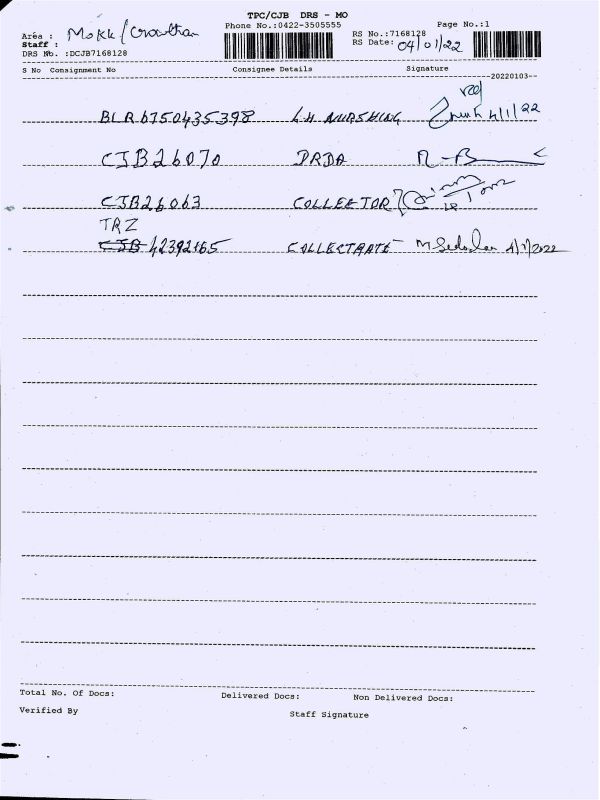 TPC/CJB DRS - MO
Phone No.:0422-3505555
Page No.:1
Area : Mokk/Crowthan
RS No.:7168128
Staff :
RS Date: 04/01/22
DRS No. :DCJB7168128
S No Consignment No Consignee Details Signature
--20220103--
BLR 6750435398 L.H NURSHING 4/1/22
CJB26070 DRDA
CJB26063 COLLECTOR
TRZ
CJB 42392165 COLLECTRATE 4/1/2022
Total No. Of Docs: Delivered Docs: Non Delivered Docs:
Verified By Staff Signature